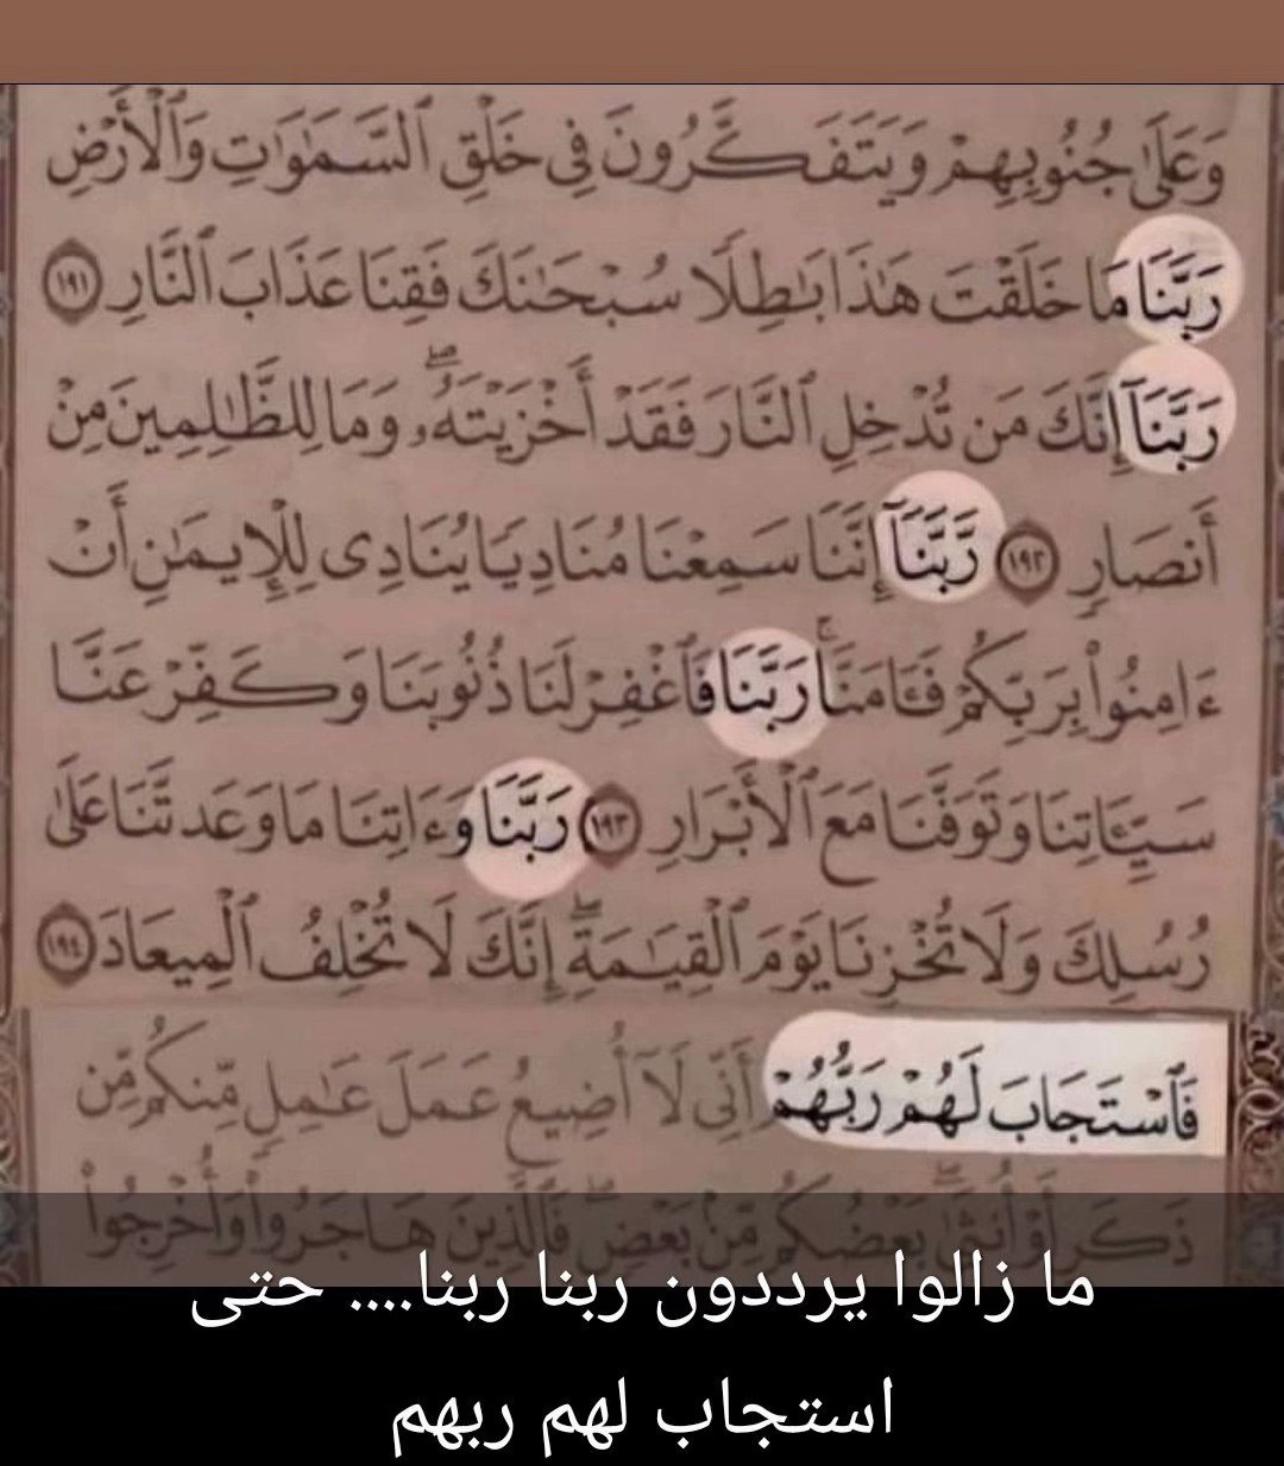 وَعَلَىٰ جُنُوبِهِمْ وَيَتَفَكَّرُونَ فِى خَلْقِ ٱلسَّمَٰوَٰتِ وَٱلْأَرْضِ
رَبَّنَا مَا خَلَقْتَ هَٰذَا بَٰطِلًا سُبْحَٰنَكَ فَقِنَا عَذَابَ ٱلنَّارِ ١٩١
رَبَّنَآ إِنَّكَ مَن تُدْخِلِ ٱلنَّارَ فَقَدْ أَخْزَيْتَهُۥۖ وَمَا لِلظَّٰلِمِينَ مِنْ
أَنصَارٍ ١٩٢ رَّبَّنَآ إِنَّنَا سَمِعْنَا مُنَادِيًا يُنَادِى لِلْإِيمَٰنِ أَنْ
ءَامِنُوا۟ بِرَبِّكُمْ فَـَٔامَنَّاۚ رَبَّنَا فَٱغْفِرْ لَنَا ذُنُوبَنَا وَكَفِّرْ عَنَّا
سَيِّـَٔاتِنَا وَتَوَفَّنَا مَعَ ٱلْأَبْرَارِ ١٩٣ رَبَّنَا وَءَاتِنَا مَا وَعَدتَّنَا عَلَىٰ
رُسُلِكَ وَلَا تُخْزِنَا يَوْمَ ٱلْقِيَٰمَةِۖ إِنَّكَ لَا تُخْلِفُ ٱلْمِيعَادَ ١٩٤
فَٱسْتَجَابَ لَهُمْ رَبُّهُمْ أَنِّى لَآ أُضِيعُ عَمَلَ عَٰمِلٍ مِّنكُم مِّن
ذَكَرٍ أَوْ أُنثَىٰۖ بَعْضُكُم مِّنۢ بَعْضٍۖ فَٱلَّذِينَ هَاجَرُوا۟ وَأُخْرِجُوا۟
ما زالوا يرددون ربنا ربنا.... حتى
استجاب لهم ربهم